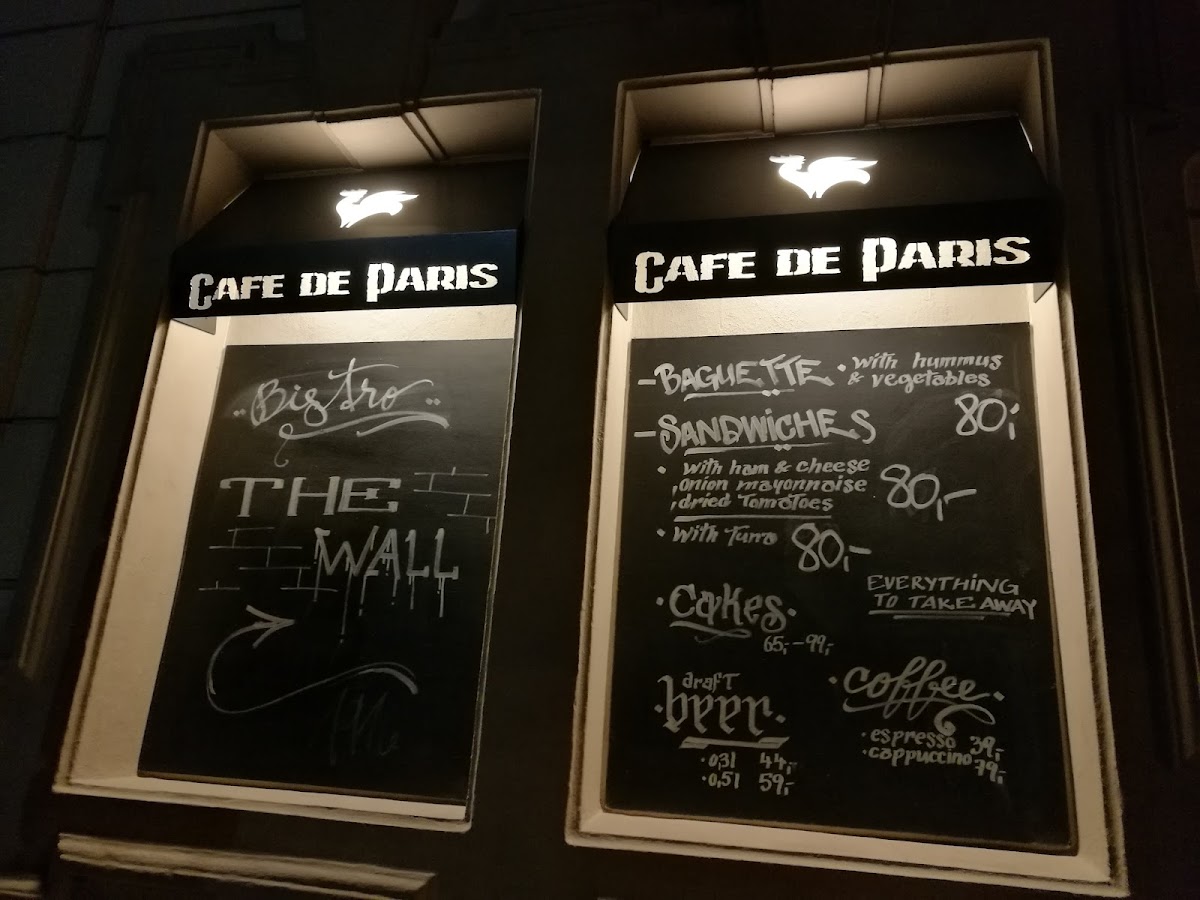 CAFE DE PARIS
Bistro
THE
WALL
CAFE DE PARIS
- BAGUETTE • with hummus
& vegetables
80,-
- SANDWICHES
• with ham & cheese
, onion mayonnaise
, dried Tomatoes
80,-
• with Tuna 80,-
EVERYTHING
TO TAKE AWAY
• Cakes •
65,- - 99,-
draft
• beer •
• 0,3l 44,-
• 0,5l 59,-
• coffee •
• espresso 39,-
• cappuccino 79,-